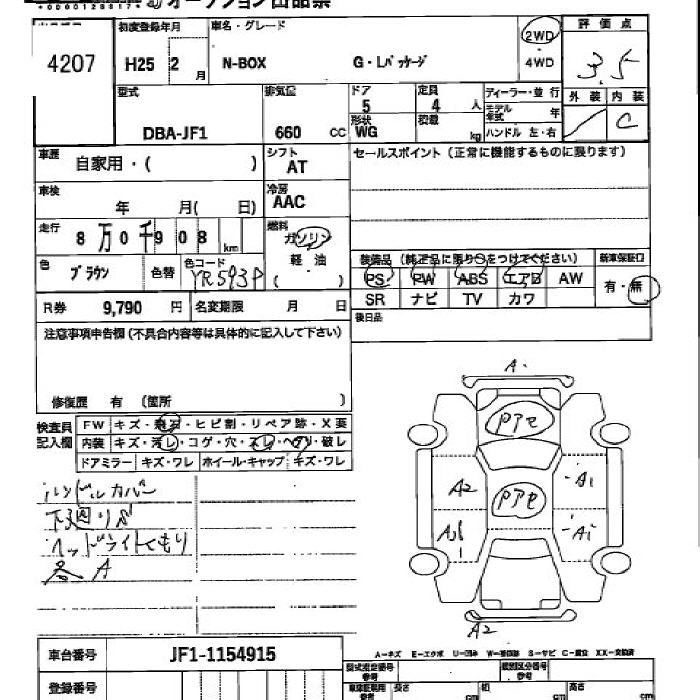 オークション出品票
4207
初度登録年月 車名・グレード 2WD 評価点
H25 2月 N-BOX G・Lパッケージ 4WD 3.5
型式 排気量 ドア 定員 ディーラー・並行 外装 内装
5 4人 モデル年式 年 C
DBA-JF1 660 CC 形状 WG 積載 kg ハンドル 左・右
車歴 自家用・( ) シフト AT セールスポイント(正常に機能するものに限ります)
車検 年 月( 日) 冷房 AAC
走行 8万0千908km 燃料 ガソリン
軽油
( )
色 ブラウン 色替 色コード YR593P
装備品(純正品に限り○をつけてください) 新車保証口
PS PW ABS エアB AW 有・無
SR ナビ TV カワ
R券 9,790円 名変期限 月 日 後日品
注意事項申告欄(不具合内容等は具体的に記入して下さい)
修復歴 有 (箇所 )
検査員記入欄 FW キズ・飛石・ヒビ割・リペア跡・X要
内装 キズ・汚レ・コゲ・穴・スレ・ヘタリ・破レ
ドアミラー キズ・ワレ ホイール・キャップ キズ・ワレ
ハンドルカバー
下廻りサ
ヘッドライトくもり
各A
A・
Pアセ
A2 A1
Pアセ
A1
A2
A-キズ E-エクボ U-凹み W-補修跡 S-サビ C-腐食 XX-交換済
車台番号 JF1-1154915
型式指定番号 参考 類別区分番号 参考
登録番号 車検証記載 参考 長さ cm 幅 cm 高さ cm